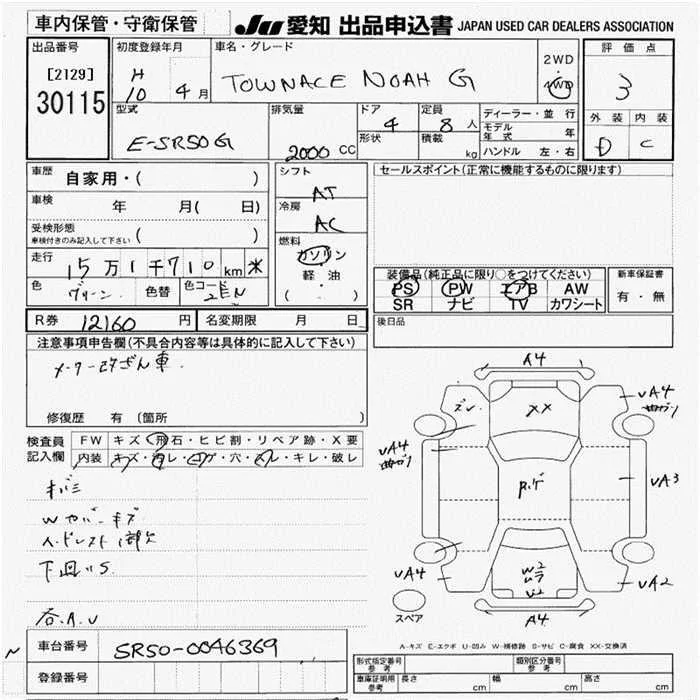 車内保管・守衛保管
JU 愛知 出品申込書 JAPAN USED CAR DEALERS ASSOCIATION
出品番号
[2129]
30115
初度登録年月
H 10 4月
車名・グレード
TOWNACE NOAH G
2WD
4WD
評価点
3
外装 内装
D C
型式
E-SR50G
排気量
2000 CC
ドア
4
形状
定員
8人
積載
kg
ディーラー・並行
モデル年式 年
ハンドル 左・右
車歴 自家用・( )
車検 年 月( 日)
受検形態
車検付きのみ記入して下さい ( )
走行 15万1千710km
色 グリーン 色替 色コード 2EN
シフト
AT
冷房
AC
燃料
ガソリン
軽・油
( ・ )
セールスポイント(正常に機能するものに限ります)
装備品(純正品に限り○をつけてください)
PS PW エアB AW
SR ナビ TV カワシート
新車保証書
有・無
R券 12160 円 名変期限 月 日
後日品
注意事項申告欄(不具合内容等は具体的に記入して下さい)
メーター改ざん車.
修復歴 有 (箇所 )
検査員
記入欄
FW キズ・飛石・ヒビ割・リペア跡・X要
内装 キズ・汚レ・コゲ・穴・スレ・キレ・破レ
Wカバーキズ
下回りS.
各A.U
A4
XX
UA4
UA4
UA3
UA4
UA2
W2
A4
スペア
A-キズ E-エクボ U-凹み W-補修跡 S-サビ C-腐食 XX-交換済
N
車台番号 SR50-0046369
登録番号
形式指定番号
参考
類別区分番号
参考
車庫証明用
参考
長さ cm 幅 cm 高さ cm